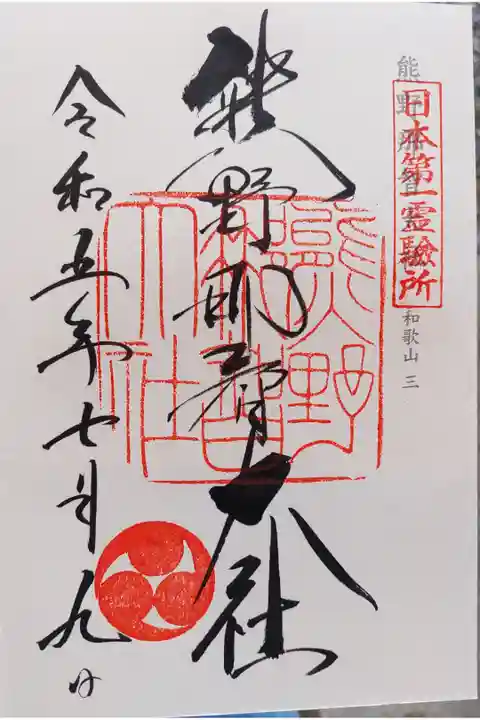 熊野那智大社 和歌山 三
日本第一霊驗所
熊野那智大社
熊野那智大社
令和五年七月九日